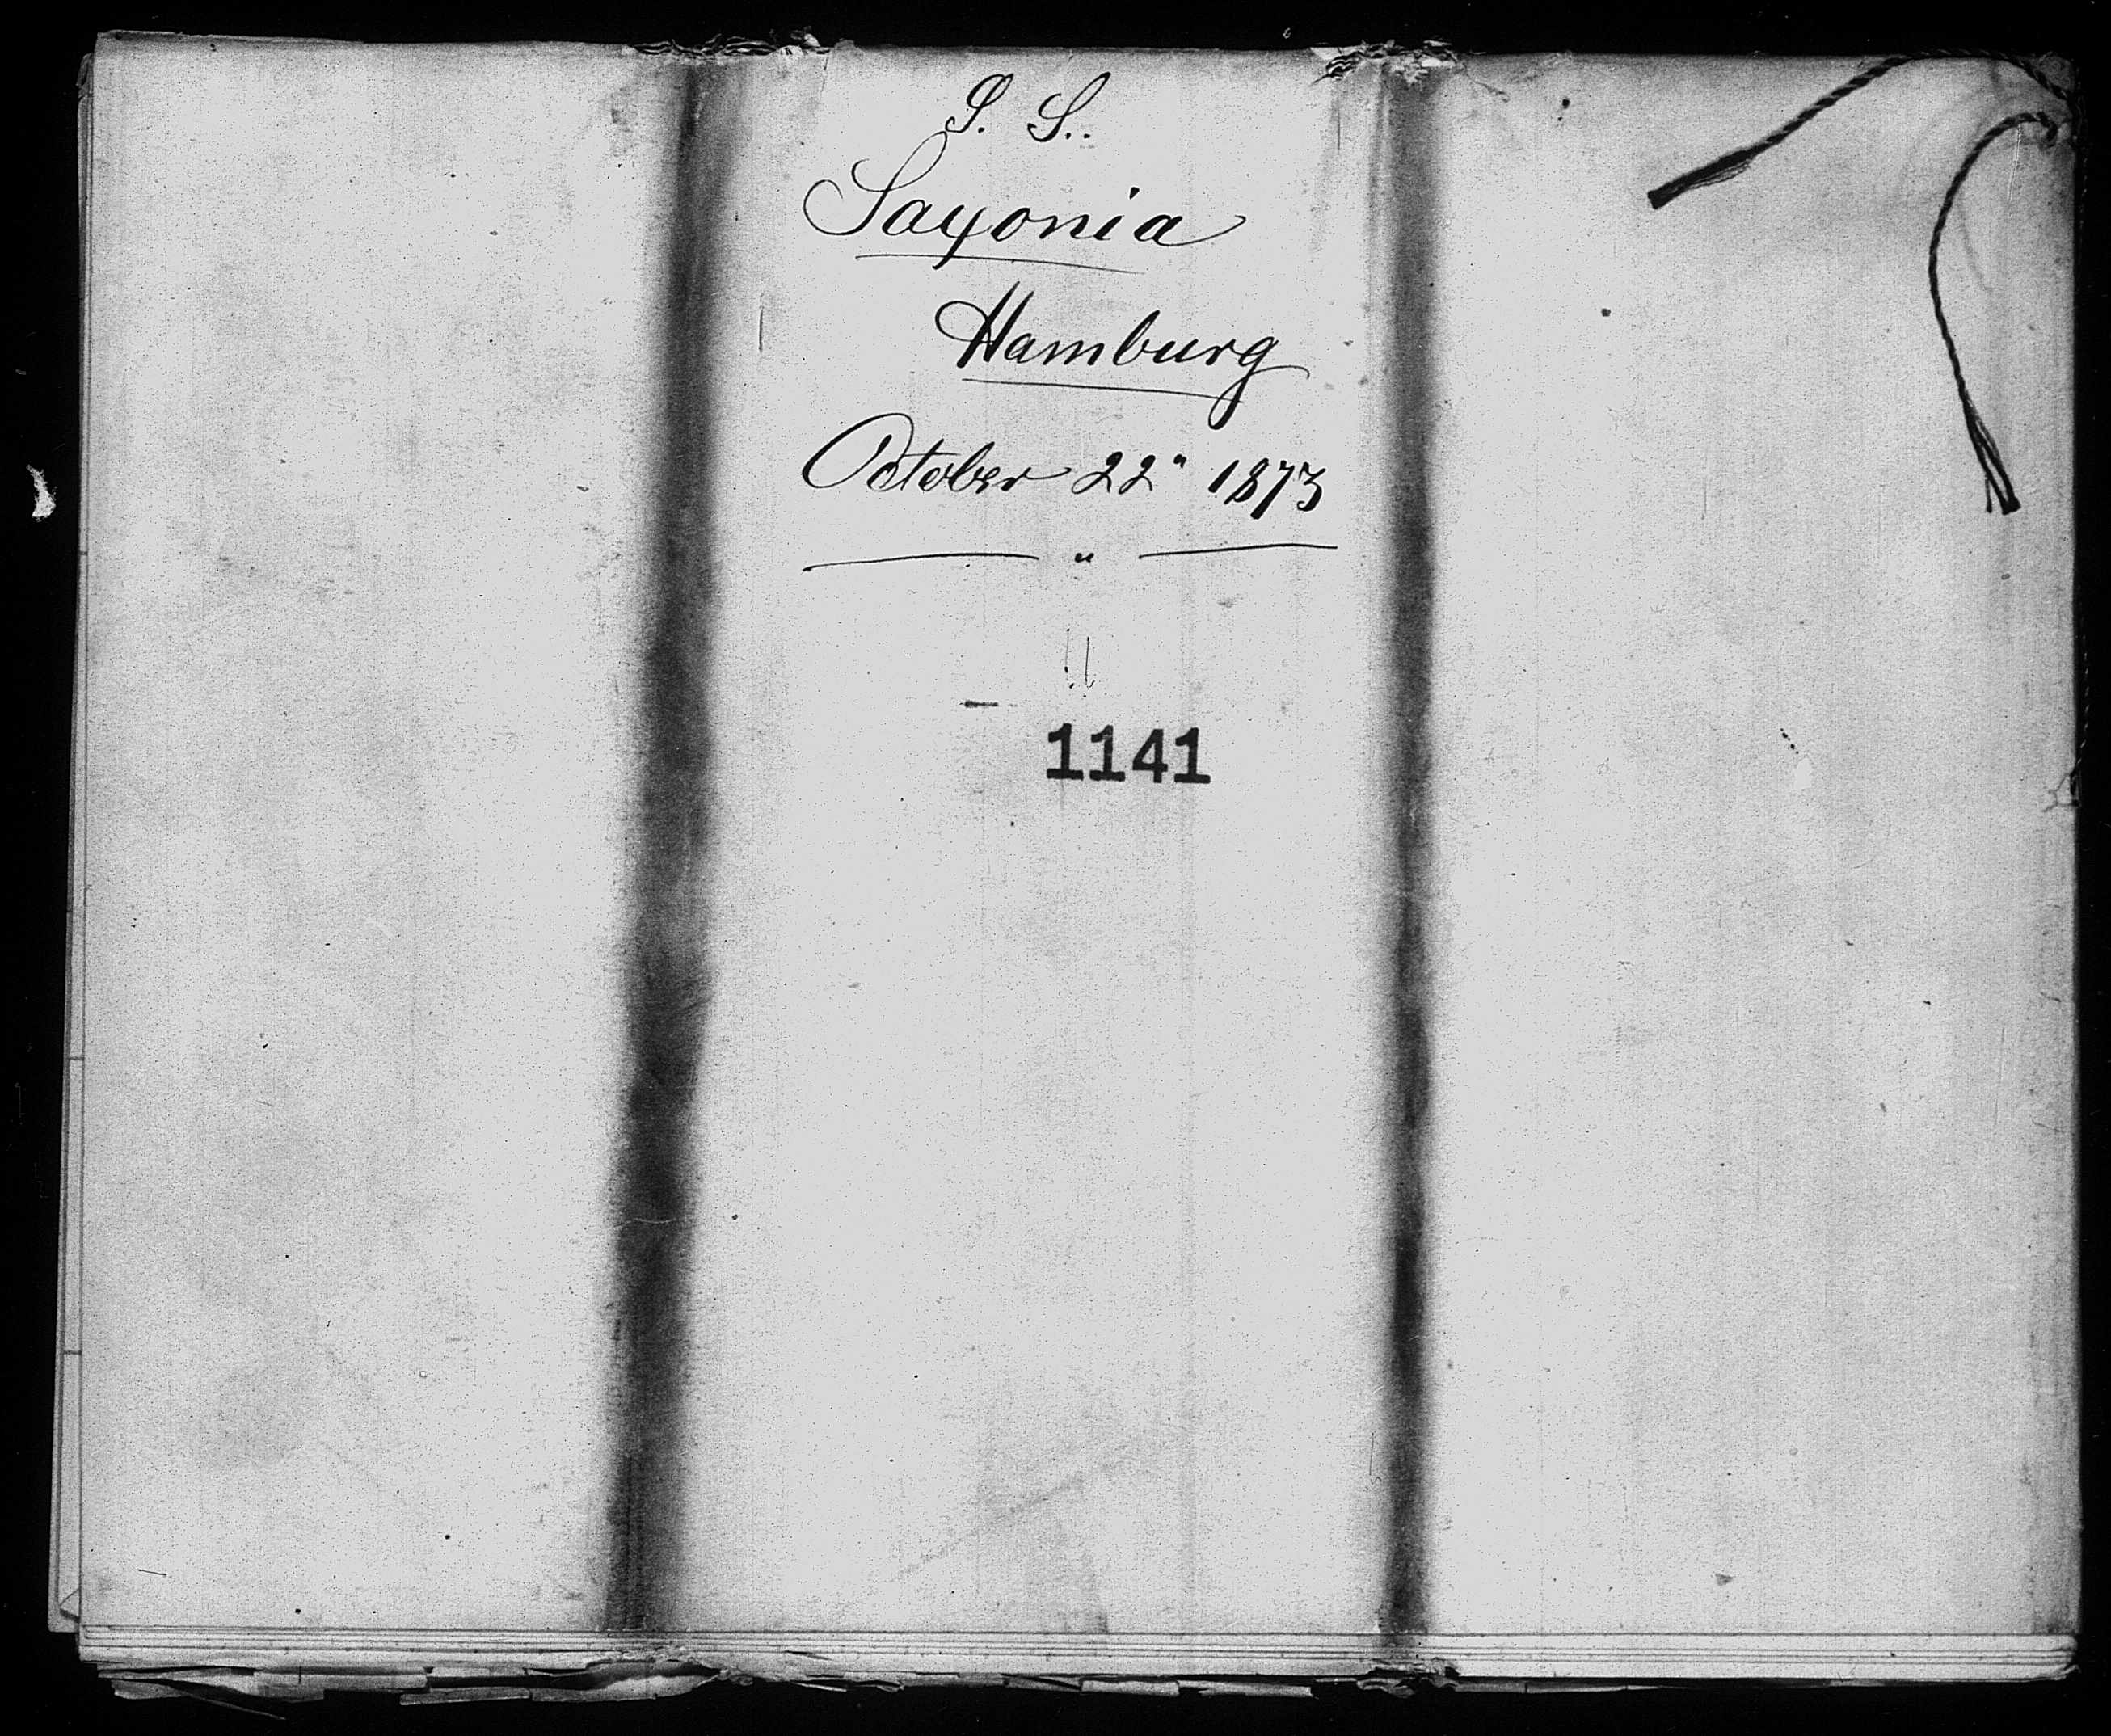 S. S.
Saxonia
Hamburg
October 22" 1873
1141